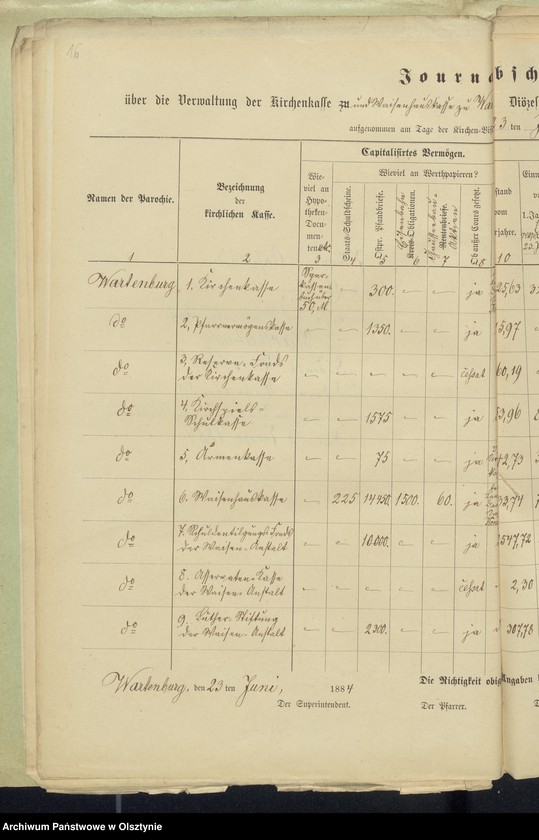 16
Journ bsch
über die Verwaltung der Kirchenkasse zu und Waisenhauskasse zu Diözes
aufgenommen am Tage der Kirchen-
Capitalisirtes Vermögen.
Wieviel an Werthpapieren?
Namen der Parochie.
Bezeichnung
der
kirchlichen Kasse.
Wie-
viel an
Hypo-
theken-
Docu-
men-
ten
Staats-Schuldscheine.
Ostpr. Pfandbriefe.
Eisenbahn
Kreis-Obligationen.
Rentenbriefe.
Aktien
Ob außer Cours gesetzt.
stand
vom
rjahre.
1 2 3 4 5 6 7 8 10
Wartenburg 1. Kirchenkasse Spar-
kassen
buch über
50, M 300. ja 25,63
do 2, Pfarrvermögenskasse 1350. ja 5,97
do 3, Reserve-Fonds
der Kirchenkasse cessat 60,19
do 4. Kirchspiels-
Schulkasse 1575 ja 3,96
do 5, Armenkasse 75 ja 2,73
do 6. Waisenhauskasse 225 14450. 1500. 60. ja 33,74
do 7. Schuldentilgungs-Fonds
der Waisen-Anstalt 10.000. ja 547,72
do 8. Asservaten-Kasse
der Waisen-Anstalt cessat 2,30
do 9. Luther-Stiftung
der Waisen-Anstalt 2300. ja 307,78
Wartenburg, den 23 ten Juni, 1884 Die Richtigkeit obig Angaben
Der Superintendent. Der Pfarrer.
Archiwum Państwowe w Olsztynie